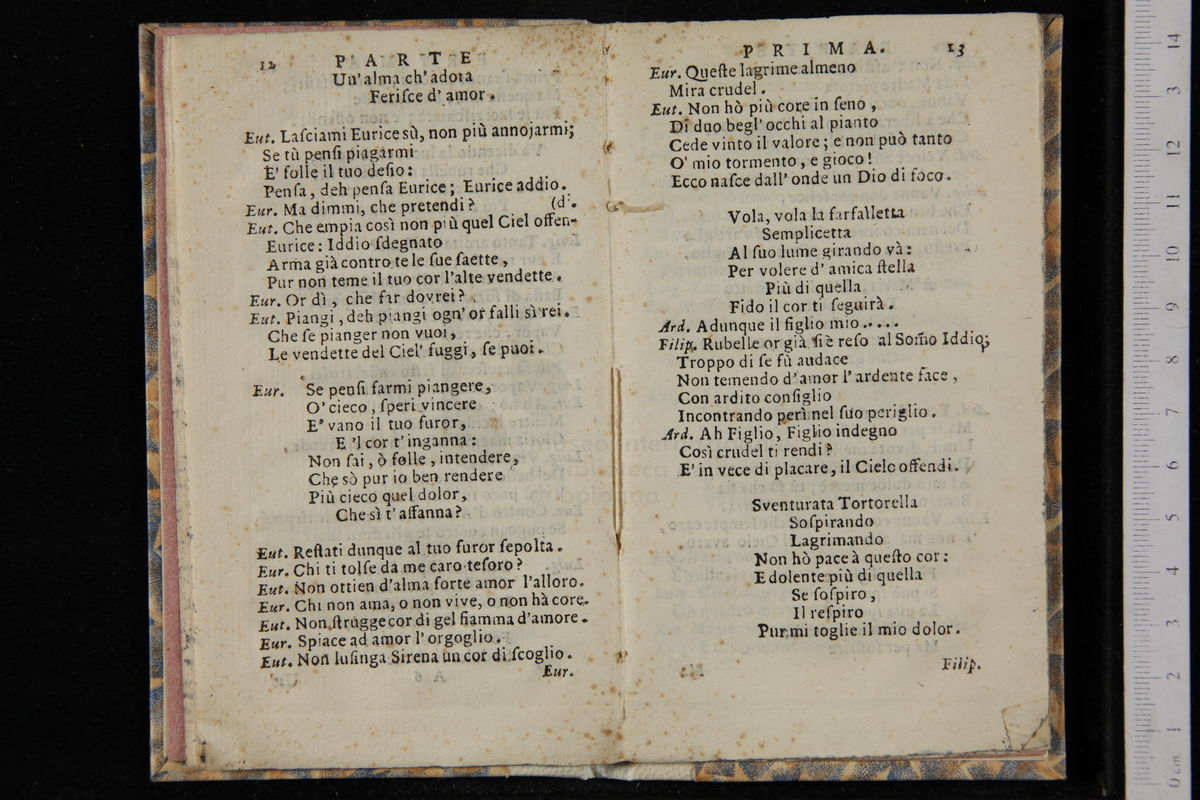 12 PARTE
Un'alma ch'adora
Feriſce d'amor.
Eut. Laſciami Eurice sù, non più annojarmi;
Se tù penſi piagarmi
E' folle il tuo deſio:
Penſa, deh penſa Eurice; Eurice addio.
Eur. Ma dimmi, che pretendi? (di.
Eut. Che empia così non più quel Ciel offen-
Eurice: Iddio ſdegnato
Arma già contro te le ſue ſaette,
Pur non teme il tuo cor l'alte vendette.
Eur. Or dì, che far dovrei?
Eut. Piangi, deh piangi ogn'or falli sì rei.
Che ſe pianger non vuoi,
Le vendette del Ciel' fuggi, ſe puoi.
Eur. Se penſi farmi piangere,
O' cieco, ſperi vincere
E' vano il tuo furor,
E 'l cor t'inganna:
Non ſai, ò folle, intendere,
Che sò pur io ben rendere
Più cieco quel dolor,
Che sì t'affanna?
Eut. Reſtati dunque al tuo furor ſepolta.
Eur. Chi ti tolſe da me caro teſoro?
Eut. Non ottien d'alma forte amor l'alloro.
Eur. Chi non ama, o non vive, o non hà core.
Eut. Non ſtrugge cor di gel fiamma d'amore.
Eur. Spiace ad amor l'orgoglio.
Eut. Non luſinga Sirena un cor di ſcoglio.
Eur.
PRIMA. 13
Eur. Queſte lagrime almeno
Mira crudel.
Eut. Non hò più core in ſeno,
Di duo begl'occhi al pianto
Cede vinto il valore; e non può tanto
O' mio tormento, e gioco!
Ecco naſce dall'onde un Dio di foco.
Vola, vola la farfalletta
Semplicetta
Al ſuo lume girando và:
Per volere d'amica ſtella
Più di quella
Fido il cor ti ſeguirà.
Ard. Adunque il figlio mio.....
Filip. Rubelle or già ſi è reſo al Som̃o Iddio;
Troppo di ſe fù audace
Non temendo d'amor l'ardente face,
Con ardito conſiglio
Incontrando perì nel ſuo periglio.
Ard. Ah Figlio, Figlio indegno
Così crudel ti rendi?
E' in vece di placare, il Cielo offendi.
Sventurata Tortorella
Soſpirando
Lagrimando
Non hò pace à queſto cor:
E dolente più di quella
Se ſoſpiro,
Il reſpiro
Pur mi toglie il mio dolor.
Filip.